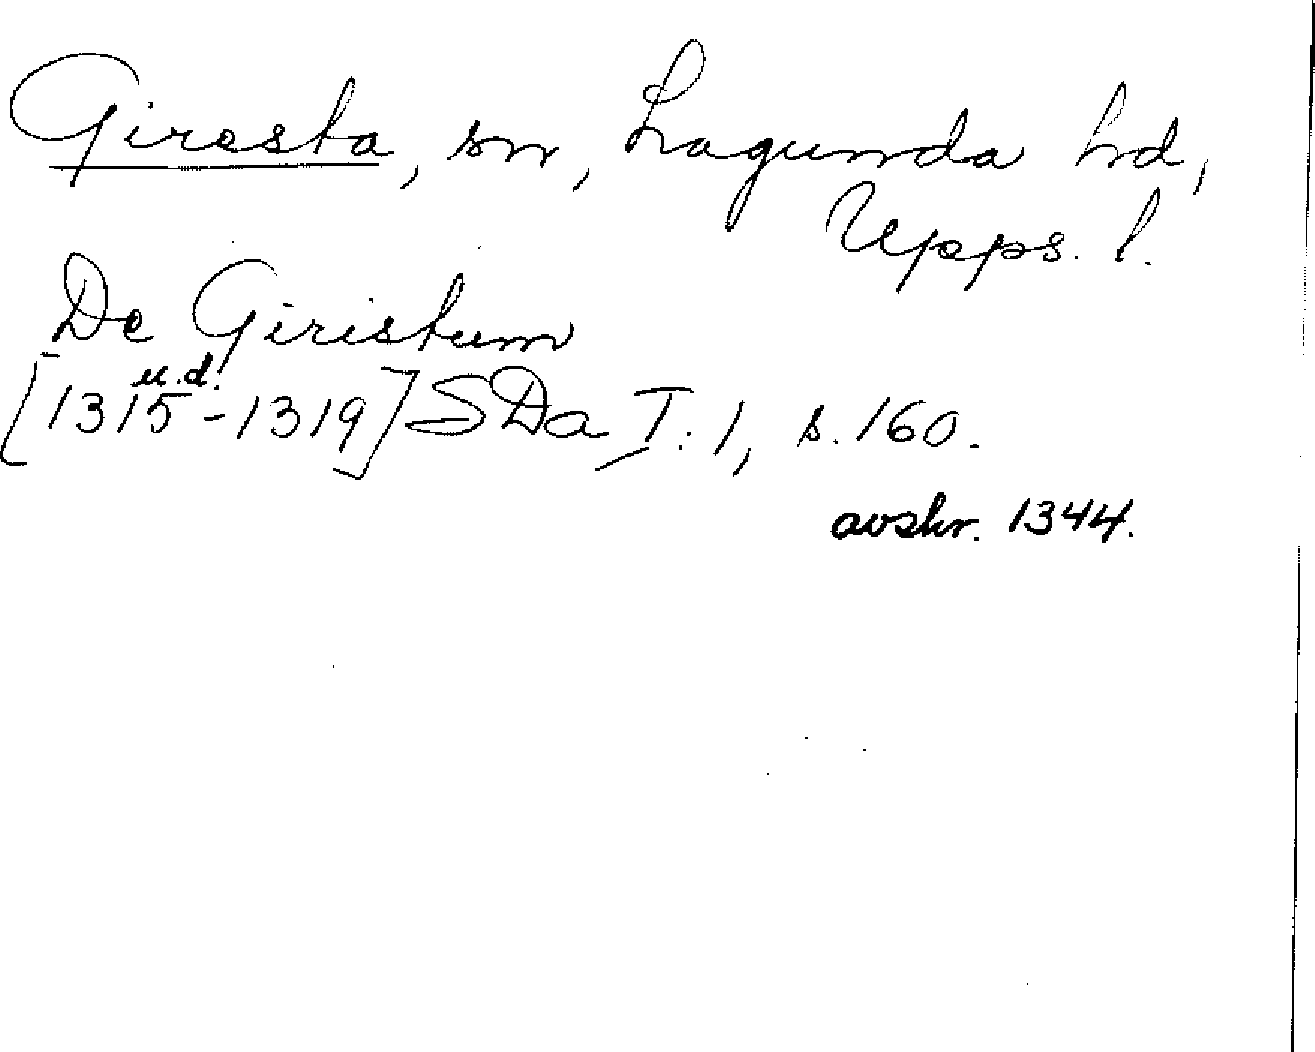 Giresta, sn, Lagunda hd,
Upps. l.
De Giristum
u.d.
[1315-1319] SDa I:1, s. 160.
avskr. 1344.